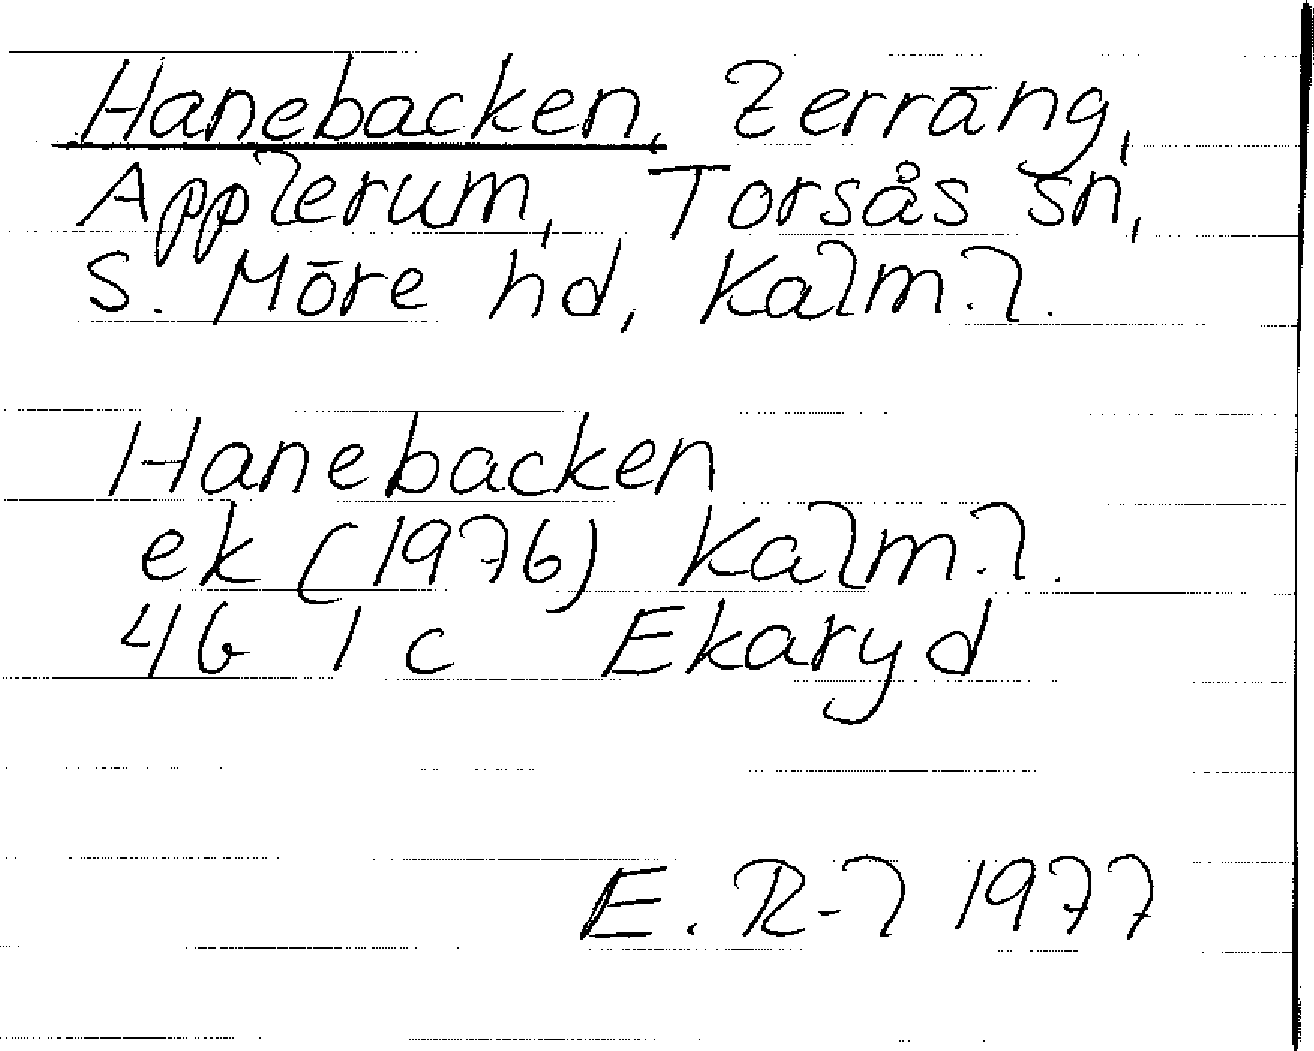 Hanebacken, terräng,
Applerum, Torsås sn,
S. Möre hd, Kalm. l.
Hanebacken
ek (1976) Kalm. l.
4G 1c Ekaryd
E. R-l 1977